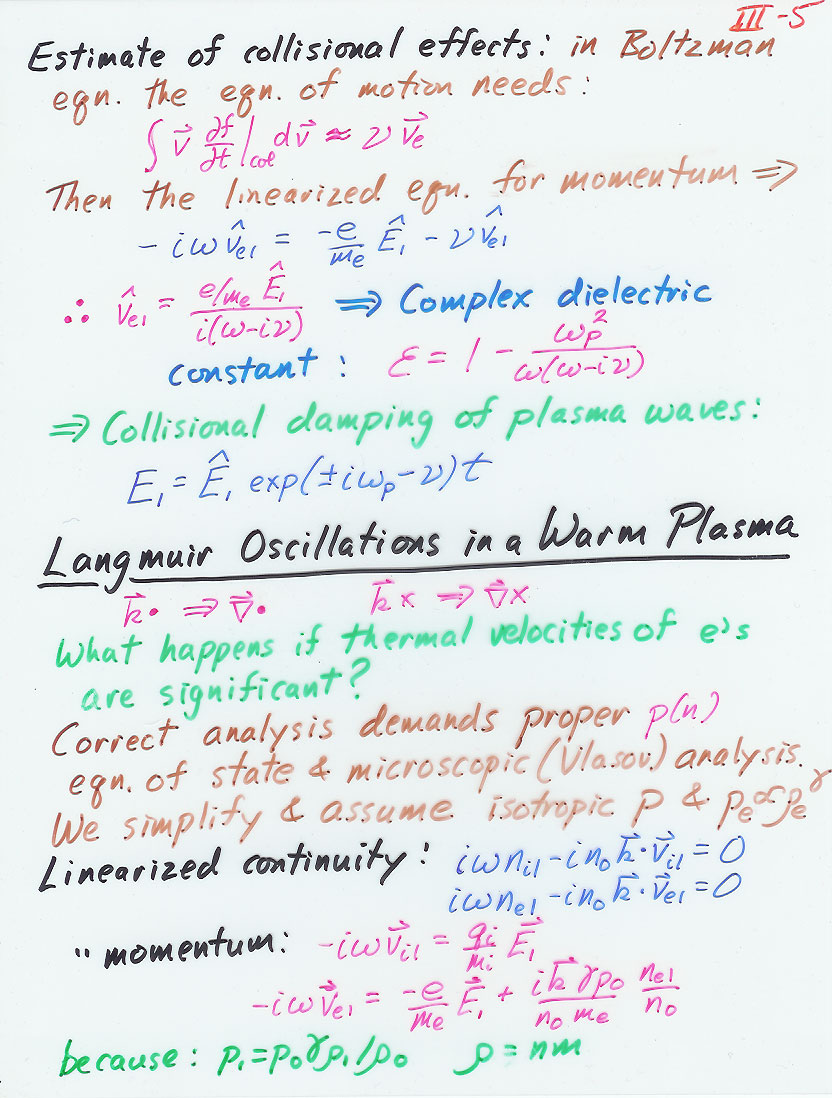 III-5
Estimate of collisional effects: in Boltzman
eqn. the eqn. of motion needs:
∫ v⃗ ∂f/∂t|col dv⃗ ≈ ν v⃗e
Then the linearized eqn. for momentum ⇒
-iω v̂e1 = -e/me Ê1 - ν v̂e1
∴ v̂e1 = e/me Ê1 / i(ω-iν) ⇒ Complex dielectric
constant: ε = 1 - ωp² / ω(ω-iν)
⇒ Collisional damping of plasma waves:
E1 = Ê1 exp(±iωp-ν)t
Langmuir Oscillations in a Warm Plasma
k⃗• ⇒ ∇⃗• k⃗× ⇒ ∇⃗×
What happens if thermal velocities of e's
are significant?
Correct analysis demands proper p(n)
eqn. of state & microscopic (Vlasov) analysis.
We simplify & assume isotropic p & pe∝ρe^γ
Linearized continuity: iωni1-in0k⃗·v⃗i1=0
iωne1-in0k⃗·v⃗e1=0
" momentum: -iωv⃗i1 = qi/mi E⃗1
-iωv⃗e1 = -e/me E⃗1 + ik⃗γp0/n0me ne1/n0
because: p1=p0γρ1/ρ0 ρ=nm